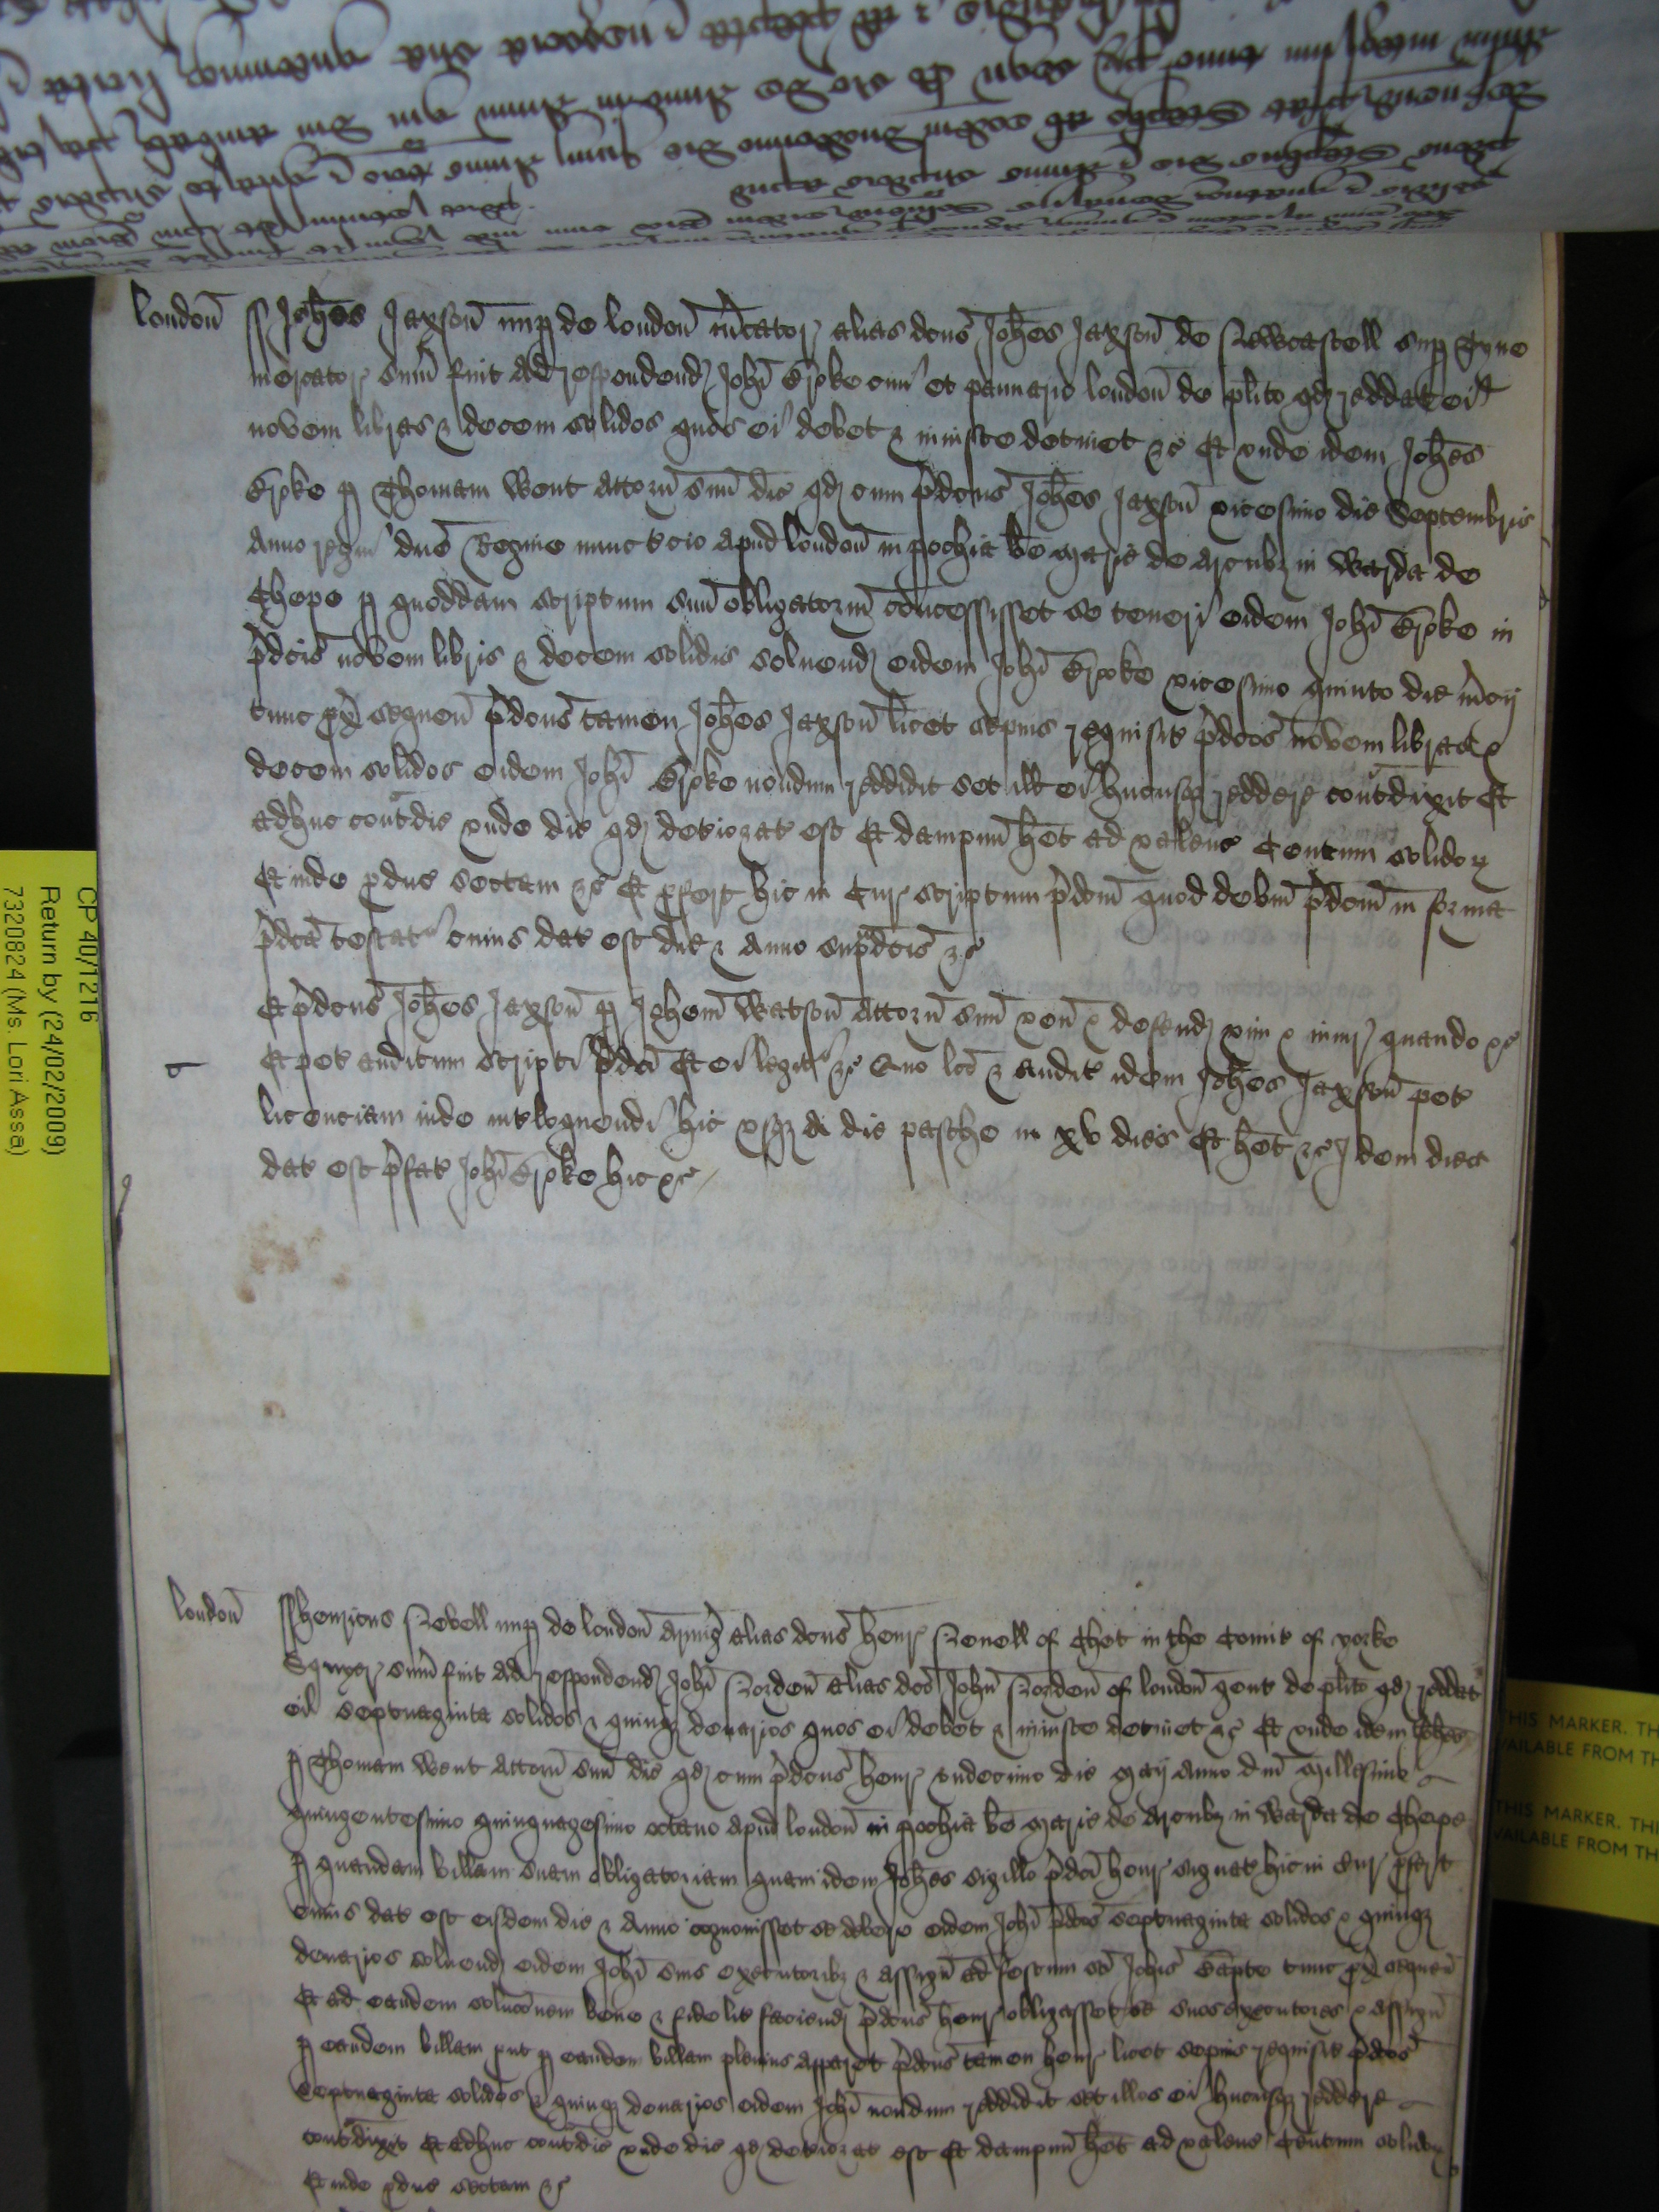 londoñ
ss Joħes Jaxson nup de london m̃cator alias dcus Joħes Jaxson de Newcastell sup Tyne
mercator sum̃ fuit ad respondend Joħi Croke civi et pannario london de plito qd reddat ei
novem libras & decem solidos quos ei debet & iniuste detinet &c Et unde idem Joħes
Croke p Thomam Went attorñ suũ dic qd cum p̃dcus Joħes Jaxson vicesimo die Septembris
Anno regni dñe Regine nunc tcio apud london in pochia be Marie de Arcubz in Warda de
Chepe p quoddam scriptum suũ obligatoriũ concessisset se teneri eidem Joħi Croke in
p̃dcis novem libris & decem solidis solvend eidem Joħi Croke vicesimo quinto die m̃cij
tunc px̃ sequeñ p̃dcus tamen Joħes Jaxson licet sepius requisit p̃dcos novem libras &
decem solidos eidem Joħi Croke nondum reddidit set ill ei hucusqz reddere contdixit Et
adhuc contdic unde dic qd deteriorat est Et dampnũ het ad valenc Centum solidoꝝ
Et inde pduc sectam &c Et pfert hic in Cur scriptum p̃dcm quod debitũ p̃dcm in forma
p̃dca testat cuius dat est die & anno sup̃dcis &c
Et p̃dcus Joħes Jaxson p Joħem Watson attorñ suũ veñ & defend vim & iniur quando &c
Et pet auditum scripti p̃dci Et ei legit &c Quo lco & audit idem Joħes Jaxson pet
licenciam inde intloquendi hic usqz a die pasche in xv dies Et het &c Idem dies
dat est p̃fat Joħi Croke hic &c
londoñ
ss Henricus Nevell nup de london Armig alias dcus Henr Nevell of Chet in the Comit of yorke
Squyer sum̃ fuit ad respondend Joħi Norden alias dcõ John Norden of london gent de plito qd reddat
ei septuaginta solidos & quinqz denarios quos ei debet & iniuste detinet &c Et unde idem Joħes
p Thomam Went attorñ suũ dic qd cum p̃dcus Henr undecimo die Maij Anno dñi Millesimo
quingentesimo quinquagesimo octavo apud london in pochia be Marie de Arcubz in Warda de Chepe
p quandam billam suam obligatoriam quam idem Joħes sigillo p̃dci Henr signat hic in Cur pfert
cuius dat est eisdem die & Anno cognovisset se debere eidem Joħi p̃dcos septuaginta solidos & quinqz
denarios solvend eidem Joħi suis executoribz & assigñ ad festum sci Joħis Bapte tunc px̃ sequeñ
Et ad eandem soluconem bene & fidelit faciend p̃dcus Henr obligasset se suos executores & assigñ
p eandem billam put p eandem billam plenius apparet p̃dcus tamen Henr licet sepius requisit p̃dcos
septuaginta solidos & quinqz denarios eidem Joħi nondum reddidit set illos ei hucusqz reddere
contdixit Et adhuc contdic unde dic qd deteriorat est Et dampnũ het ad valenc Centum solidoꝝ
Et inde pduc sectam &c
CP 40/1216
Return by (24/02/2009)
7320824 (Ms. Lori Assa)
THIS MARKER. TH
VAILABLE FROM TH
THIS MARKER. THI
VAILABLE FROM TH